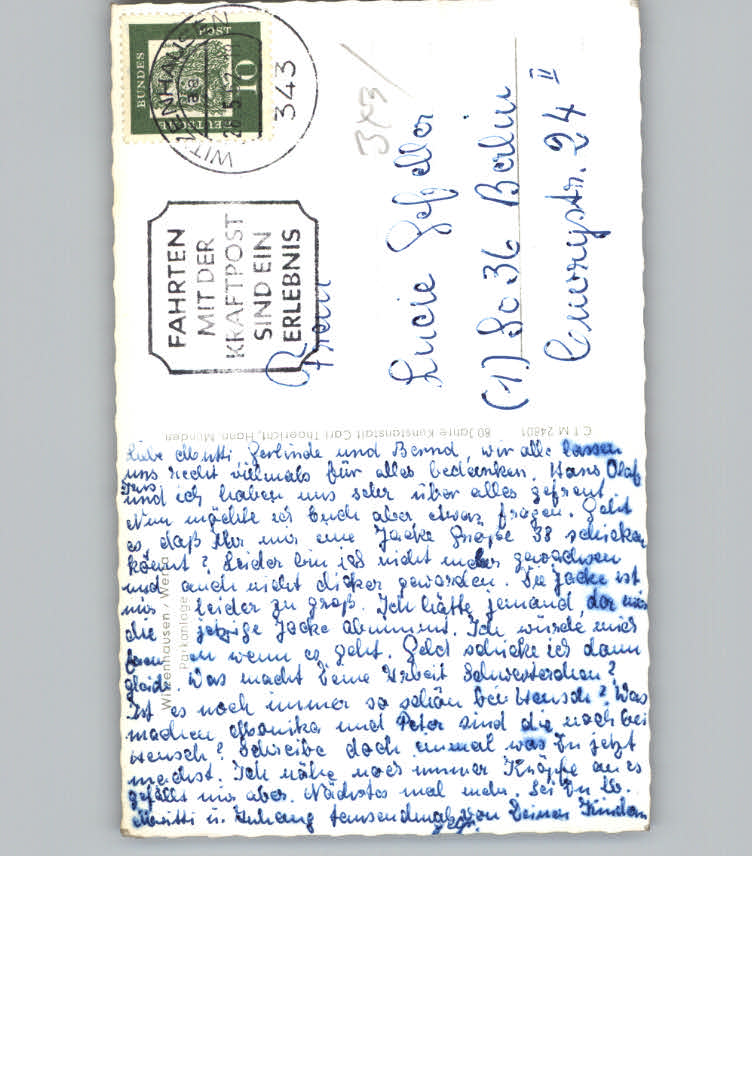 DEUTSCHE BUNDESPOST
10
WITZENHAUSEN
343
FAHRTEN
MIT DER
KRAFTPOST
SIND EIN
ERLEBNIS
343
Frau
Lucie
(1) So 36 Berlin
24 II
C T M 24801 80 Jahre Kunstanstalt Carl Thoericht, Hann. Münden
Witzenhausen / Werra
Parkanlage
Liebe Mutti Gerlinde und Bernd, wir alle lassen
uns recht vielmals für alles bedanken. Hans Olaf
und ich haben uns sehr über alles gefreut.
Nun möchte ich Euch aber etwas fragen. Geht
es daß Ihr mir eine Jacke Größe 38 schicken
könnt? Leider bin ich nicht mehr gewachsen
und auch nicht dicker geworden. Die Jacke ist
mir leider zu groß. Ich hätte jemand, der mir
die jetzige Jacke abnimmt. Ich würde mich
freuen wenn es geht. Geld schicke ich dann
gleich. Was macht Deine Arbeit Schwesterchen?
Ist es noch immer so schön bei Wensch? Was
machen Monika und Peter sind die noch bei
Wensch? Schreibe doch einmal was Du jetzt
machst. Ich nähe noch immer Knöpfe an es
gefällt mir aber. Nächstes mal mehr. Sei Du lb.
Mutti u. Anhang tausendmal von Deinen Kindern